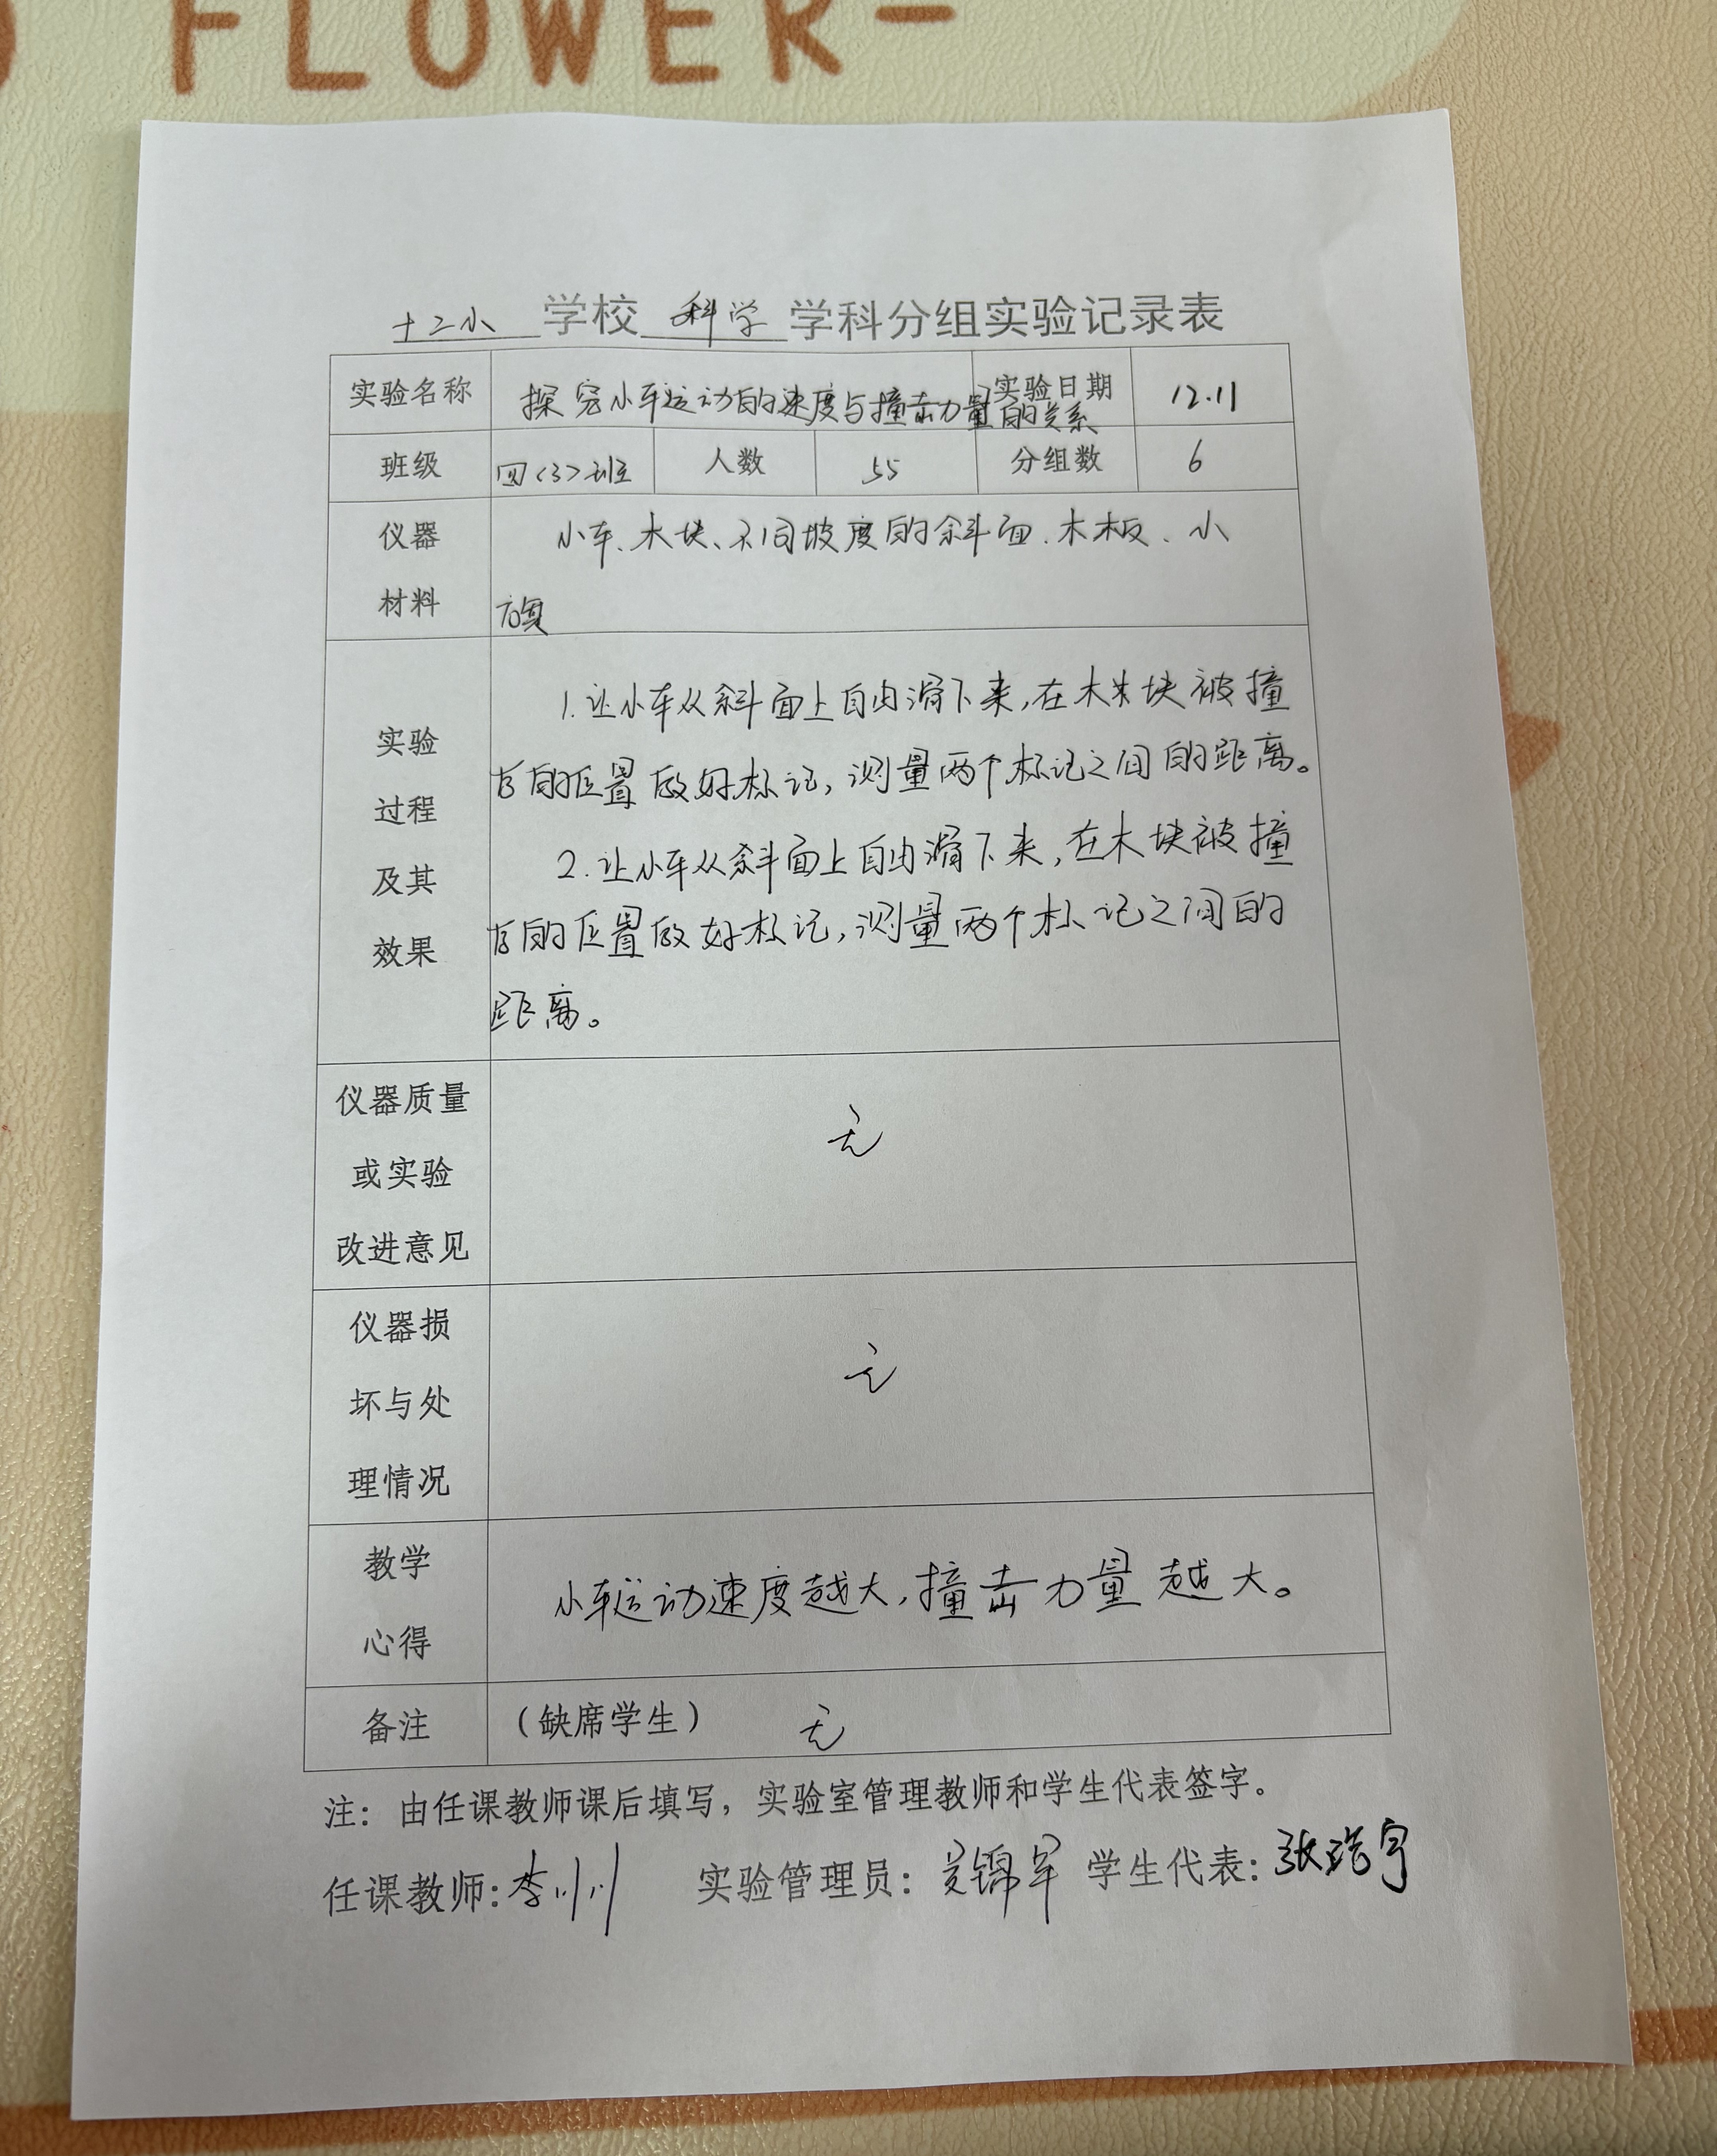 FLOWER-
十二小 学校 科学 学科分组实验记录表
实验名称 探究小车运动的速度与撞击力量的关系 实验日期 12.11
班级 四(3)班 人数 55 分组数 6
仪器 小车、木块、不同坡度的斜面、木板、小
材料 旗
1.让小车从斜面上自由滑下来,在木块被撞
实验
后的位置做好标记,测量两个标记之间的距离。
过程
2.让小车从斜面上自由滑下来,在木块被撞
及其
后的位置做好标记,测量两个标记之间的
效果
距离。
仪器质量
无
或实验
改进意见
仪器损
无
坏与处
理情况
教学
小车运动速度越大,撞击力量越大。
心得
备注 (缺席学生) 无
注:由任课教师课后填写,实验室管理教师和学生代表签字。
任课教师:李川 实验管理员: 锦军 学生代表:张浩宇